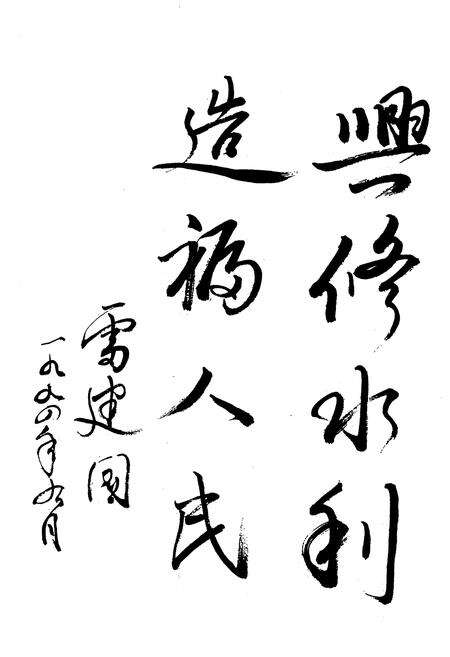 興修水利
造福人民
雷建國
一九九四年九月